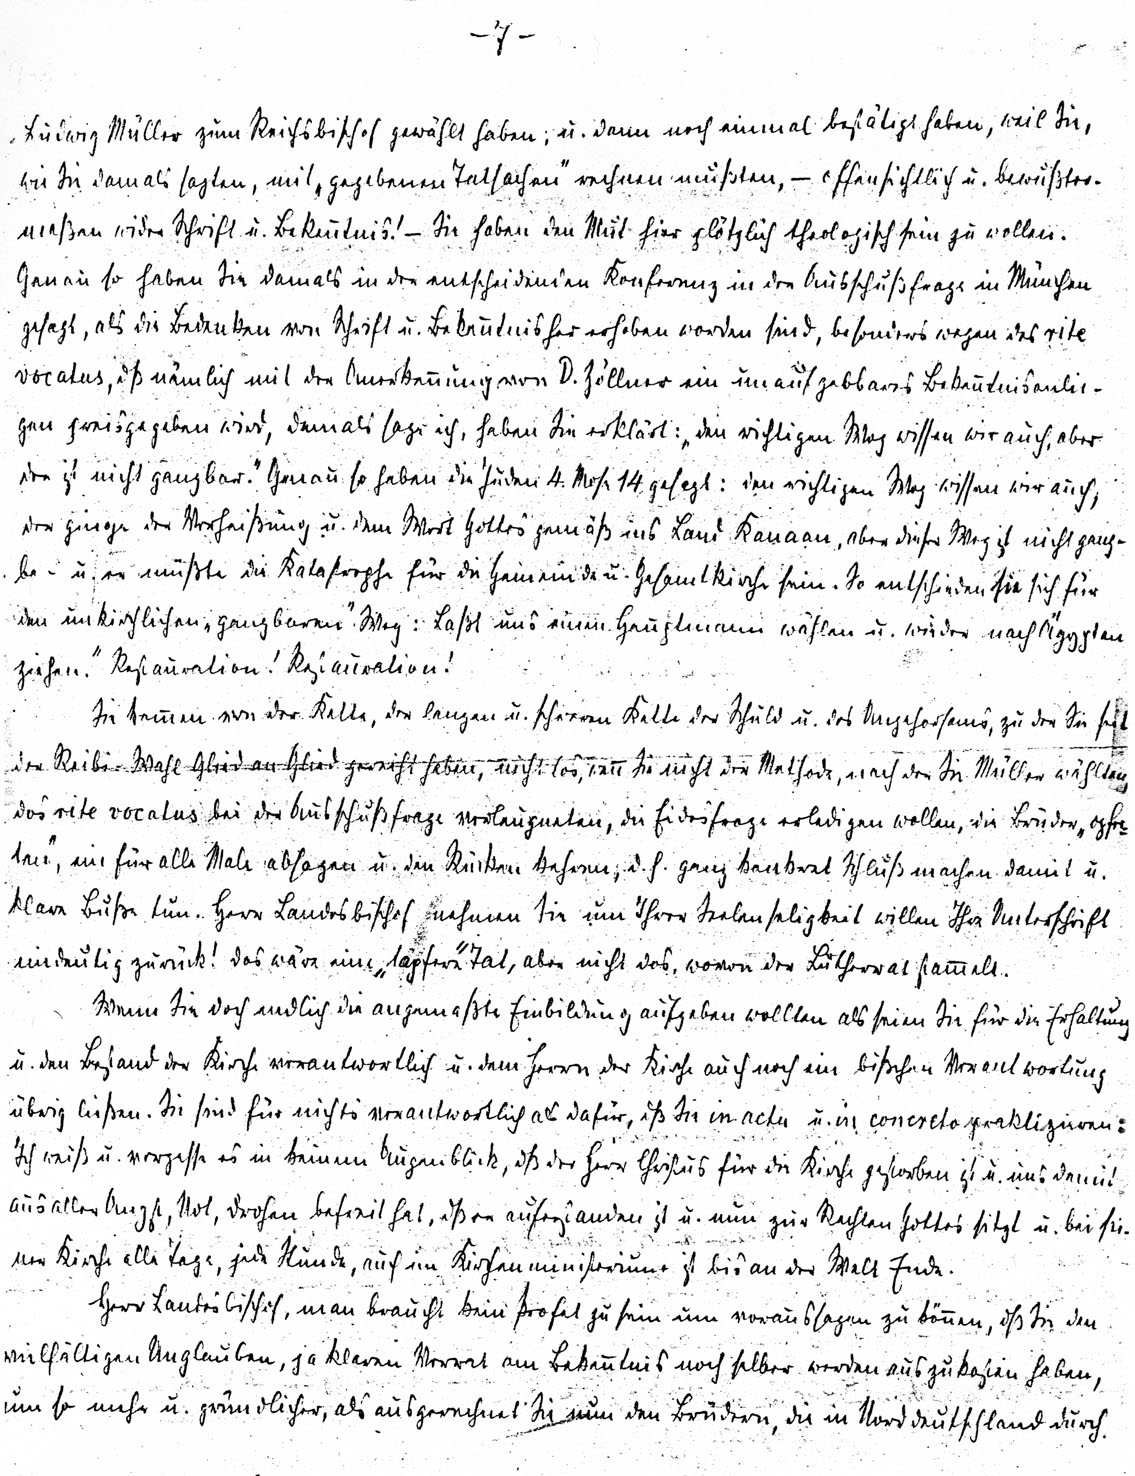 - 7 -
Ludwig Müller zum Reichsbischof gewählt haben; u. dann noch einmal bestätigt haben, weil Sie,
wie Sie damals sagten, mit „gegebenen Tatsachen" rechnen mußten, – offensichtlich u. bewußter-
maßen wider Schrift u. Bekeñtnis! – Sie haben den Mut hier plötzlich theologisch sein zu wollen.
Genau so haben Sie damals in der entscheidenden Konferenz in der Ausschußfrage in München
gesagt, als die Bedenken von Schrift u. Bekeñtnis her erhoben worden sind, besonders wegen des rite
vocatus, dß nämlich mit der Anerkeñung von D. Zöllner ein unaufgebbares Bekeñtnisanlie-
gen preisgegeben wird, damals sage ich, haben Sie erklärt: „den richtigen Weg wissen wir auch, aber
der ist nicht gangbar." Genau so haben die Juden 4. Mose 14 gesagt: den richtigen Weg wissen wir auch,
der ginge der Verheißung u. dem Wort Gottes gemäß ins Land Kanaan, aber dieser Weg ist nicht gang-
ba- u. er müßte die Katastrophe für die Gemeinde u. Gesamtkirche sein. So entschieden sie sich für
den unkirchlichen „gangbaren" Weg: Laßt uns einen Hauptmann wählen u. wieder nach Ägypten
ziehen." Restauration! Restauration!
Sie kom̄en von der Kette, der langen u. schweren Kette der Schuld u. des Ungehorsams, zu der Sie seit
der Reibi-Wahl Glied an Glied gereiht haben, nicht los, weñ Sie nicht der Methode, nach der Sie Müller wählten,
das rite vocatus bei der Ausschußfrage verleugneten, die Eidesfrage erledigen wollen, die Brüder „opfer-
ten", ein für alle Male absagen u. den Rücken kehren, d. h. ganz konkret Schluß machen damit u.
klare Buße tun. Herr Landesbischof nehmen Sie um Ihrer Seelenseligkeit willen Ihre Unterschrift
eindeutig zurück! das wäre eine „tapfere" Tat, aber nicht das, wovon der Lutherrat stam̄elt.
Wenn Sie doch endlich die angemaßte Einbildung aufgeben wollten als seien Sie für die Erhaltung
u. den Bestand der Kirche verantwortlich u. dem Herrn der Kirche auch noch ein bißchen Verantwortung
übrig ließen. Sie sind für nichts verantwortlich als dafür, dß Sie in actu u. in concreto praktizieren:
Ich weiß u. vergesse es in keinem Augenblick, dß der Herr Christus für die Kirche gestorben ist u. uns damit
aus aller Angst, Not, Drohen befreit hat, dß er auferstanden ist u. nun zur Rechten Gottes sitzt u. bei sei-
ner Kirche alle Tage, jede Stunde, auch im Kirchenministerium ist bis an der Welt Ende.
Herr Landesbischof, man braucht kein Profet zu sein um voraussagen zu köñen, dß Sie den
vielfältigen Unglauben, ja klaren Verrat am Bekeñtnis noch selber werden auszukosten haben,
um so mehr u. gründlicher, als ausgerechnet Sie nun den Brüdern, die in Norddeutschland durch